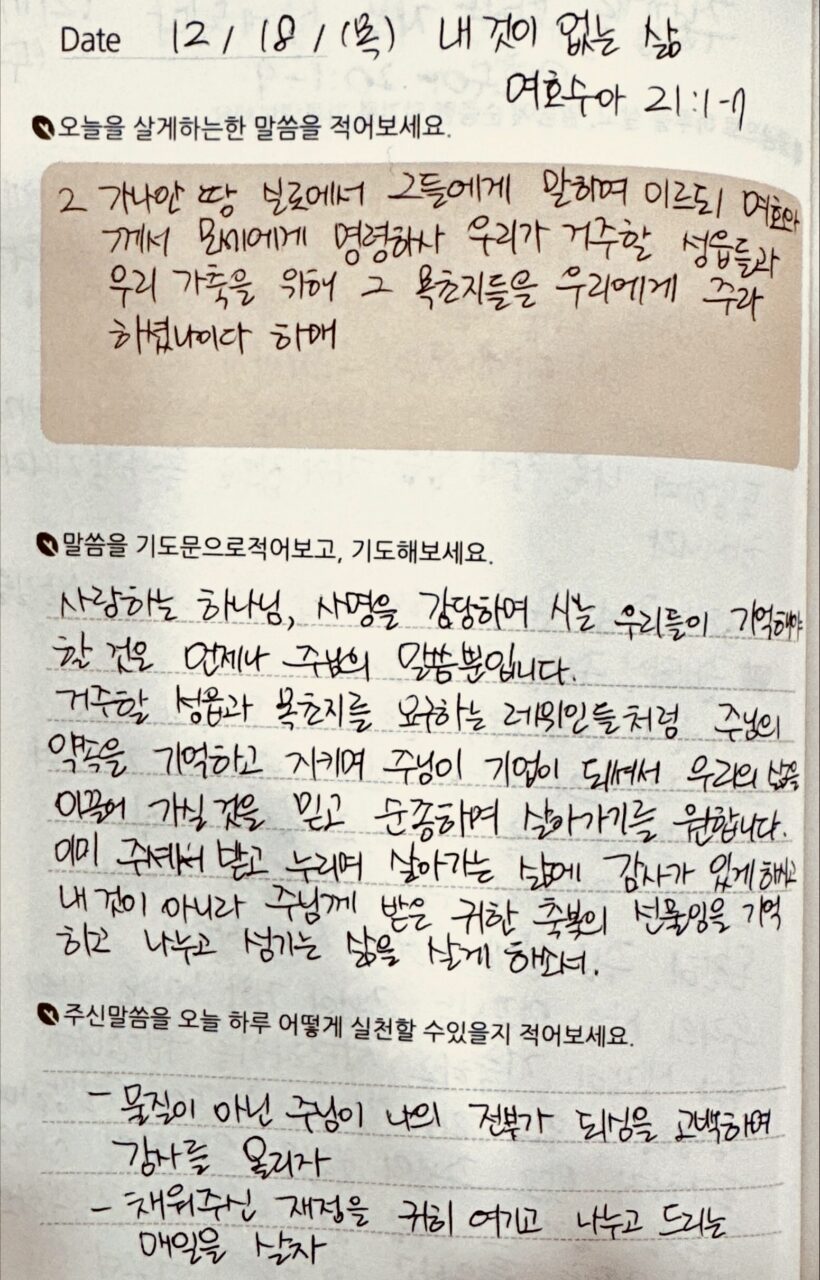 Date 12 / 18 / (목) 내 것이 없는 삶
여호수아 21:1-7
오늘을 살게하는한 말씀을 적어보세요.
2 가나안 땅 실로에서 그들에게 말하여 이르되 여호와
께서 모세에게 명령하사 우리가 거주할 성읍들과
우리 가축을 위해 그 목초지들을 우리에게 주라
하셨나이다 하매
말씀을 기도문으로적어보고, 기도해보세요.
사랑하는 하나님, 사명을 감당하며 사는 우리들이 기억해야
할 것은 언제나 주님의 말씀뿐입니다.
거주할 성읍과 목초지를 요구하는 레위인들처럼 주님의
약속을 기억하고 지키며 주님이 기업이 되셔서 우리의 삶을
이끌어 가실 것을 믿고 순종하며 살아가기를 원합니다.
이미 주셔서 받고 누리며 살아가는 삶에 감사가 있게하시고
내 것이 아니라 주님께 받은 귀한 축복의 선물임을 기억
하고 나누고 섬기는 삶을 살게 하소서.
주신말씀을 오늘 하루 어떻게 실천할 수있을지 적어보세요.
- 물질이 아닌 주님이 나의 전부가 되심을 고백하며
감사를 올리자
- 채워주신 재정을 귀히 여기고 나누고 드리는
매일을 살자